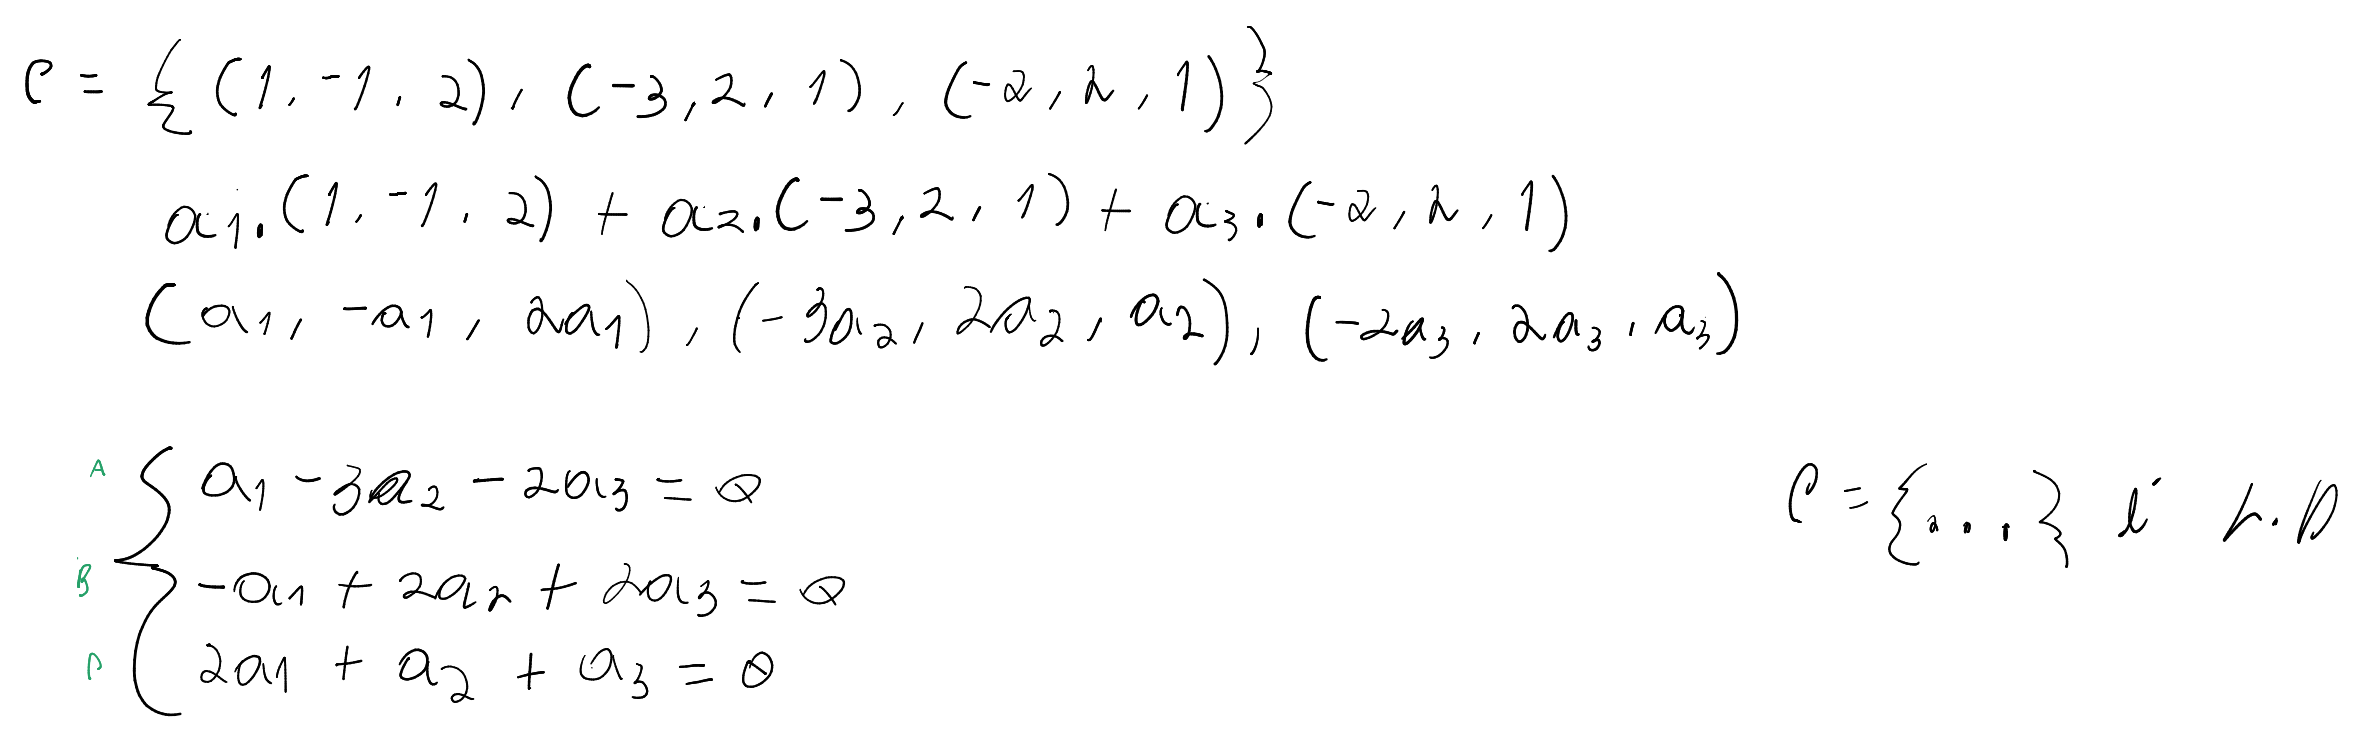 C = { (1, -1, 2), (-3, 2, 1), (-2, 2, 1) }
a1.(1, -1, 2) + a2.(-3, 2, 1) + a3.(-2, 2, 1)
(a1, -a1, 2a1), (-3a2, 2a2, a2), (-2a3, 2a3, a3)
A a1 - 3a2 - 2a3 = 0
C = {...} é L.D
B -a1 + 2a2 + 2a3 = 0
2a1 + a2 + a3 = 0